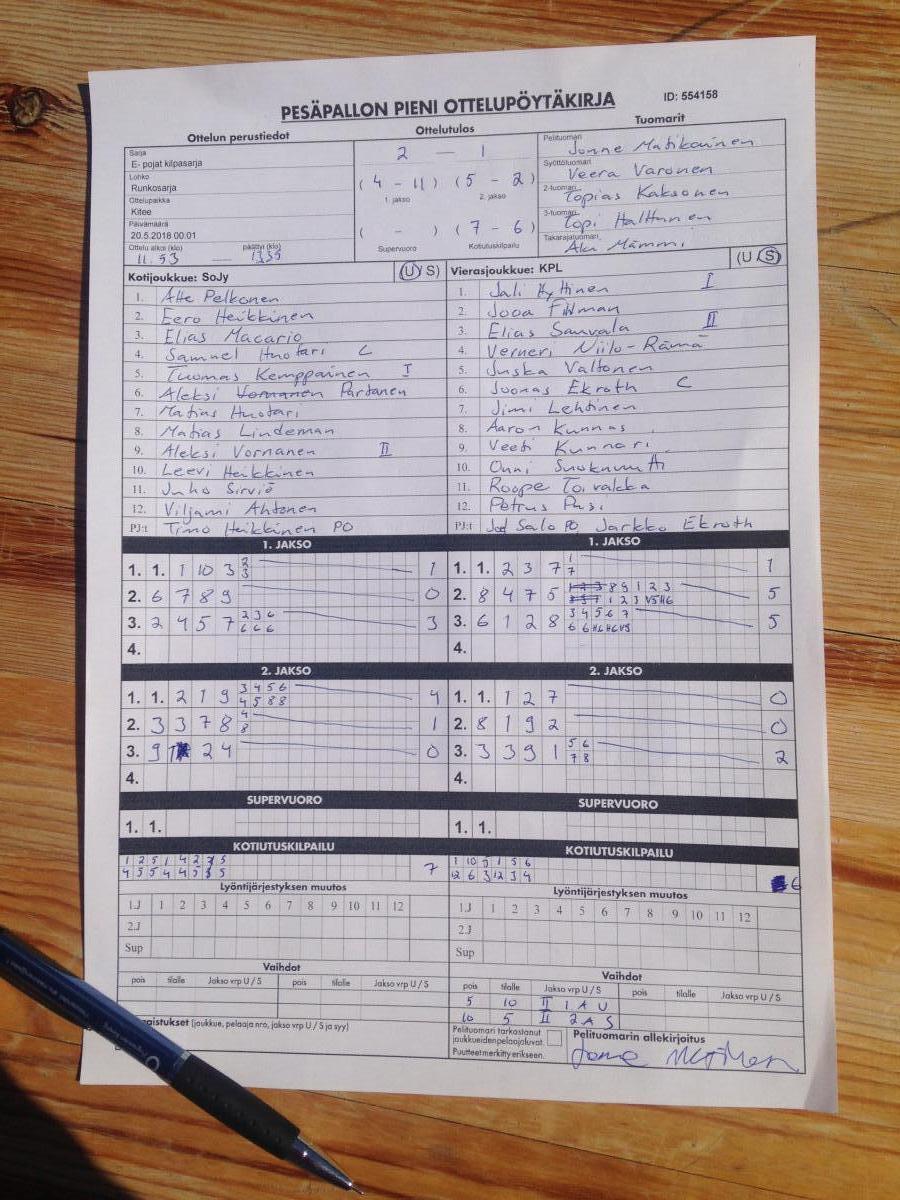 PESÄPALLON PIENI OTTELUPÖYTÄKIRJA
ID: 554158
Ottelun perustiedot
Ottelutulos
Tuomarit
Sarja
E- pojat kilpasarja
Lohko
Runkosarja
Ottelupaikka
Kitee
Päivämäärä
20.5.2018 00.01
Ottelu alkoi (klo) päättyi (klo)
11.53 — 1335
2 — 1
( 4 - 11 ) ( 5 - 2 )
1. jakso 2. jakso
( - ) ( 7 - 6 )
Supervuoro Kotiutuskilpailu
Pelituomari
Jonne Matikainen
Syöttötuomari
Veera Varonen
2-tuomari
Topias Kaksonen
3-tuomari
Topi Halttunen
Takarajatuomari
Aku Mämmi
Kotijoukkue: SoJy (U/S)
1. Atte Pelkonen
2. Eero Heikkinen
3. Elias Macario
4. Samuel Huotari C
5. Tuomas Kemppainen I
6. Aleksi Vornanen Partanen
7. Matias Huotari
8. Matias Lindeman
9. Aleksi Vornanen II
10. Leevi Heikkinen
11. Juho Sirviö
12. Viljami Ahtonen
PJ:t Timo Heikkinen PO
Vierasjoukkue: KPL (U/S)
1. Jali Hyttinen I
2. Jooa
3. Elias Sauvala II
4. Verneri Niilo-Rämä
5. Juska Valtonen
6. Joonas Ekroth C
7. Jimi Lehtinen
8. Aaron Kunnas
9. Veeti Kunnari
10. Onni
11. Roope Toivakka
12. Petrus Pusi
PJ:t Salo PO Jarkko Ekroth
1. JAKSO
1. 1. 1 10 3 2 1
3
2. 6 7 8 9 0
3. 2 4 5 7 2 3 6 3
6 6 6
4.
1. JAKSO
1. 1. 2 3 7 1 1
7
2. 8 4 7 5 1 2 3 8 9 1 2 3 5
3. 6 1 2 8 3 4 5 6 7 5
4.
2. JAKSO
1. 1. 2 1 9 3 4 5 6 4
4 5 8 8
2. 3 3 7 8 4 1
8
3. 9 1 2 4 0
4.
2. JAKSO
1. 1. 1 2 7 0
2. 8 1 9 2 0
3. 3 3 9 1 5 6 2
7 8
4.
SUPERVUORO
1. 1.
SUPERVUORO
1. 1.
KOTIUTUSKILPAILU
1 2 5 1 4 2 3 5 7
4 5 5 4 4 5 5
KOTIUTUSKILPAILU
1 10 5 1 5 6 6
12 6 3 12 3 4
Lyöntijärjestyksen muutos
1.J 1 2 3 4 5 6 7 8 9 10 11 12
2.J
Sup
Lyöntijärjestyksen muutos
1.J 1 2 3 4 5 6 7 8 9 10 11 12
2.J
Sup
Vaihdot
pois tilalle Jakso vrp U/S pois tilalle Jakso vrp U/S
Vaihdot
pois tilalle Jakso vrp U/S pois tilalle Jakso vrp U/S
5 10 II 1 A U
10 5 II 2 A S
(joukkue, pelaaja nro, jakso vrp U/S ja syy)
Pelituomari tarkastanut
joukkueiden pelaajaluvat.
Puutteet merkitty erikseen.
Pelituomarin allekirjoitus